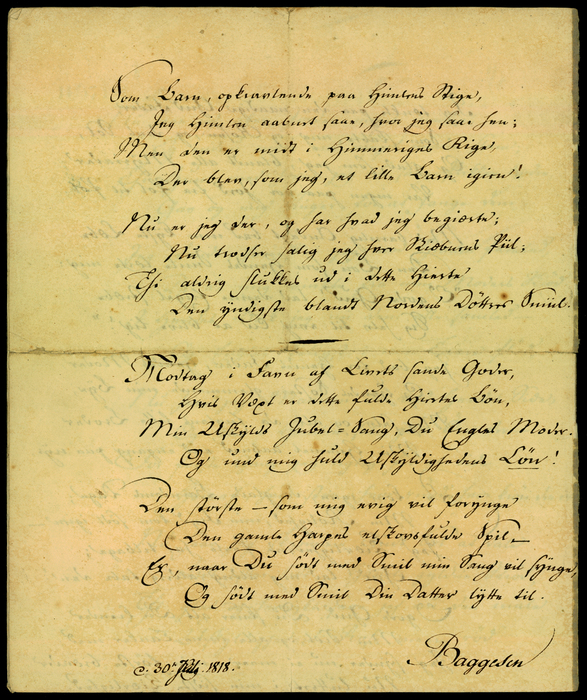 Som Barn, opkravlende paa Himlens Stige,
Jeg Himlen aabent saae, hvor jeg saae hen;
Men den er midt i Himmeriges Rige,
Der blev, som jeg, et lille Barn igien!
Nu er jeg der, og har hvad jeg begierte;
Nu trodser salig jeg hver Skiæbnens Piil;
Thi aldrig slukkes ud i dette Hierte
Den yndigste blandt Nordens Döttres Smiil.
Modtag i Favn af Livets sande Goder,
Hvis Væxt er dette fulde Hiertes Bön,
Min Uskylds Jubel-Sang, Du Engles Moder.
Og und mig huld Uskyldighedens Lön!
Den störste – som mig evig vil forynge
Den gamle Harpes elskovsfulde Spil,
Er, naar Du södt med Smil min Sang vil synge,
Og södt med Smil Din Datter lytte til.
d. 30te Juli 1818.
Baggesen